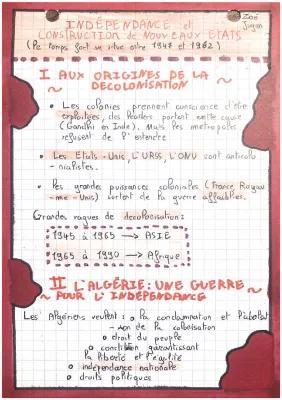 INDÉPENDANCE et
Zoé
CONSTRUCTION de NOUVEAUX ÉTATS
(Le temps fort se situe entre 1947 et 1962)
I AUX ORIGINES DE LA
DÉCOLONISATION
• Les colonies prennent conscience d'être
exploitées, des leaders portent cette cause
(Gandhi en Inde). Mais les métropoles
refusent de l'entendre
• Les États-Unis, L'URSS, L'ONU sont anticolo
-nialistes.
• Les grandes puissances coloniales (France, Royau
-me-Unis) sortent de la guerre affaiblies.
Grandes vagues de decolonisation :
1945 à 1965 → ASIE
1965 à 1990 → Afrique
II L'ALGÉRIE : UNE GUERRE
POUR L'INDÉPENDANCE
Les Algériens veulent : o la condamnation et l'aboli
-on de la colonisation
o droit du peuple
o constitution garantissant
la liberté et l'égalité
o indépendance nationale
o droits politiques